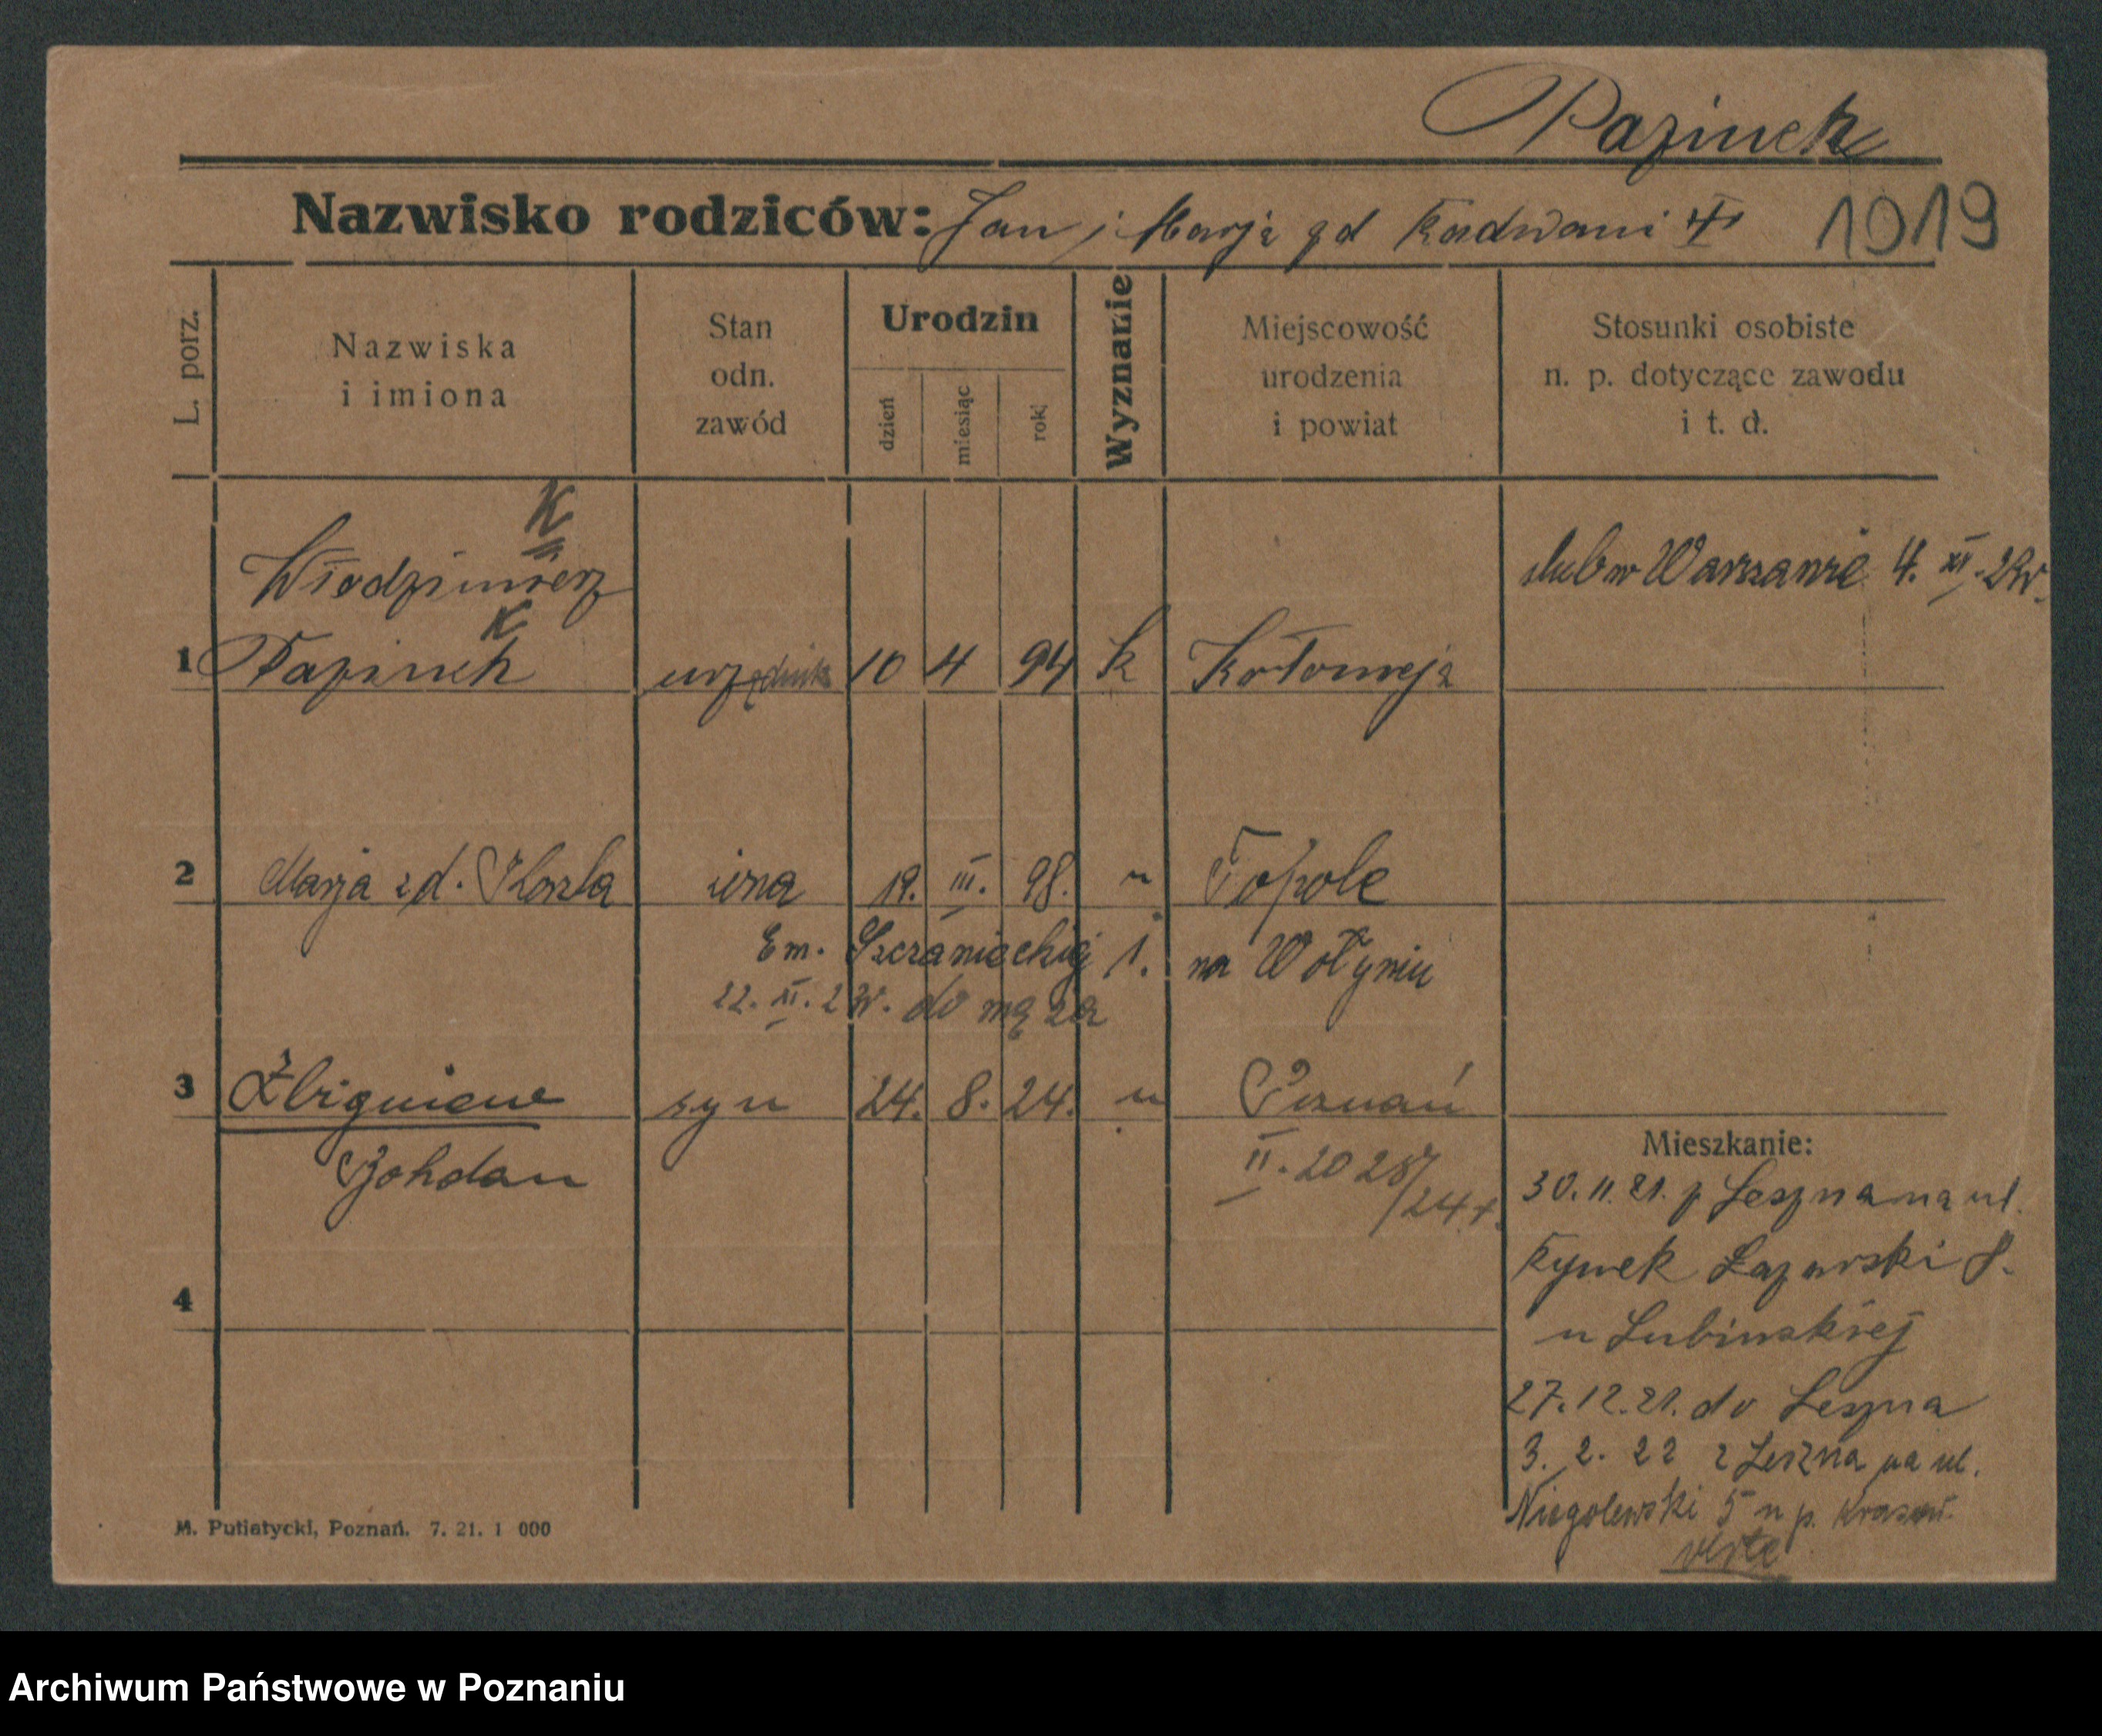 Pazinek
Nazwisko rodziców: Jan i Marja zd Radwani 1919
L. porz.
Nazwiska
i imiona
Stan
odn.
zawód
Urodzin
dzień
miesiąc
rok
Wyznanie
Miejscowość
urodzenia
i powiat
Stosunki osobiste
n. p. dotyczące zawodu
i t. d.
K
Włodzimierz ślub w Warszawie 4. XI.
K
1 Pazinek urzędnik 10 4 94 k Kołomeja
2 Marja zd. żona 19. III. 98. " Topole
Em. Sczanieckiej 1. na Wołyniu
22. XI. do męża
3 Zbigniew syn 24. 8. 24. " Poznań
Bohdan
II. 2028/24
Mieszkanie:
30. 11. 21. z Leszna na ul.
Rynek Łazarski 8.
u Lubinskiej
4
27. 12. 21. do Leszna
3. 2. 22 z Leszna na ul.
Niegolewski 5 u p.
verte
M. Putiatycki, Poznań. 7. 21. 1 000
Archiwum Państwowe w Poznaniu